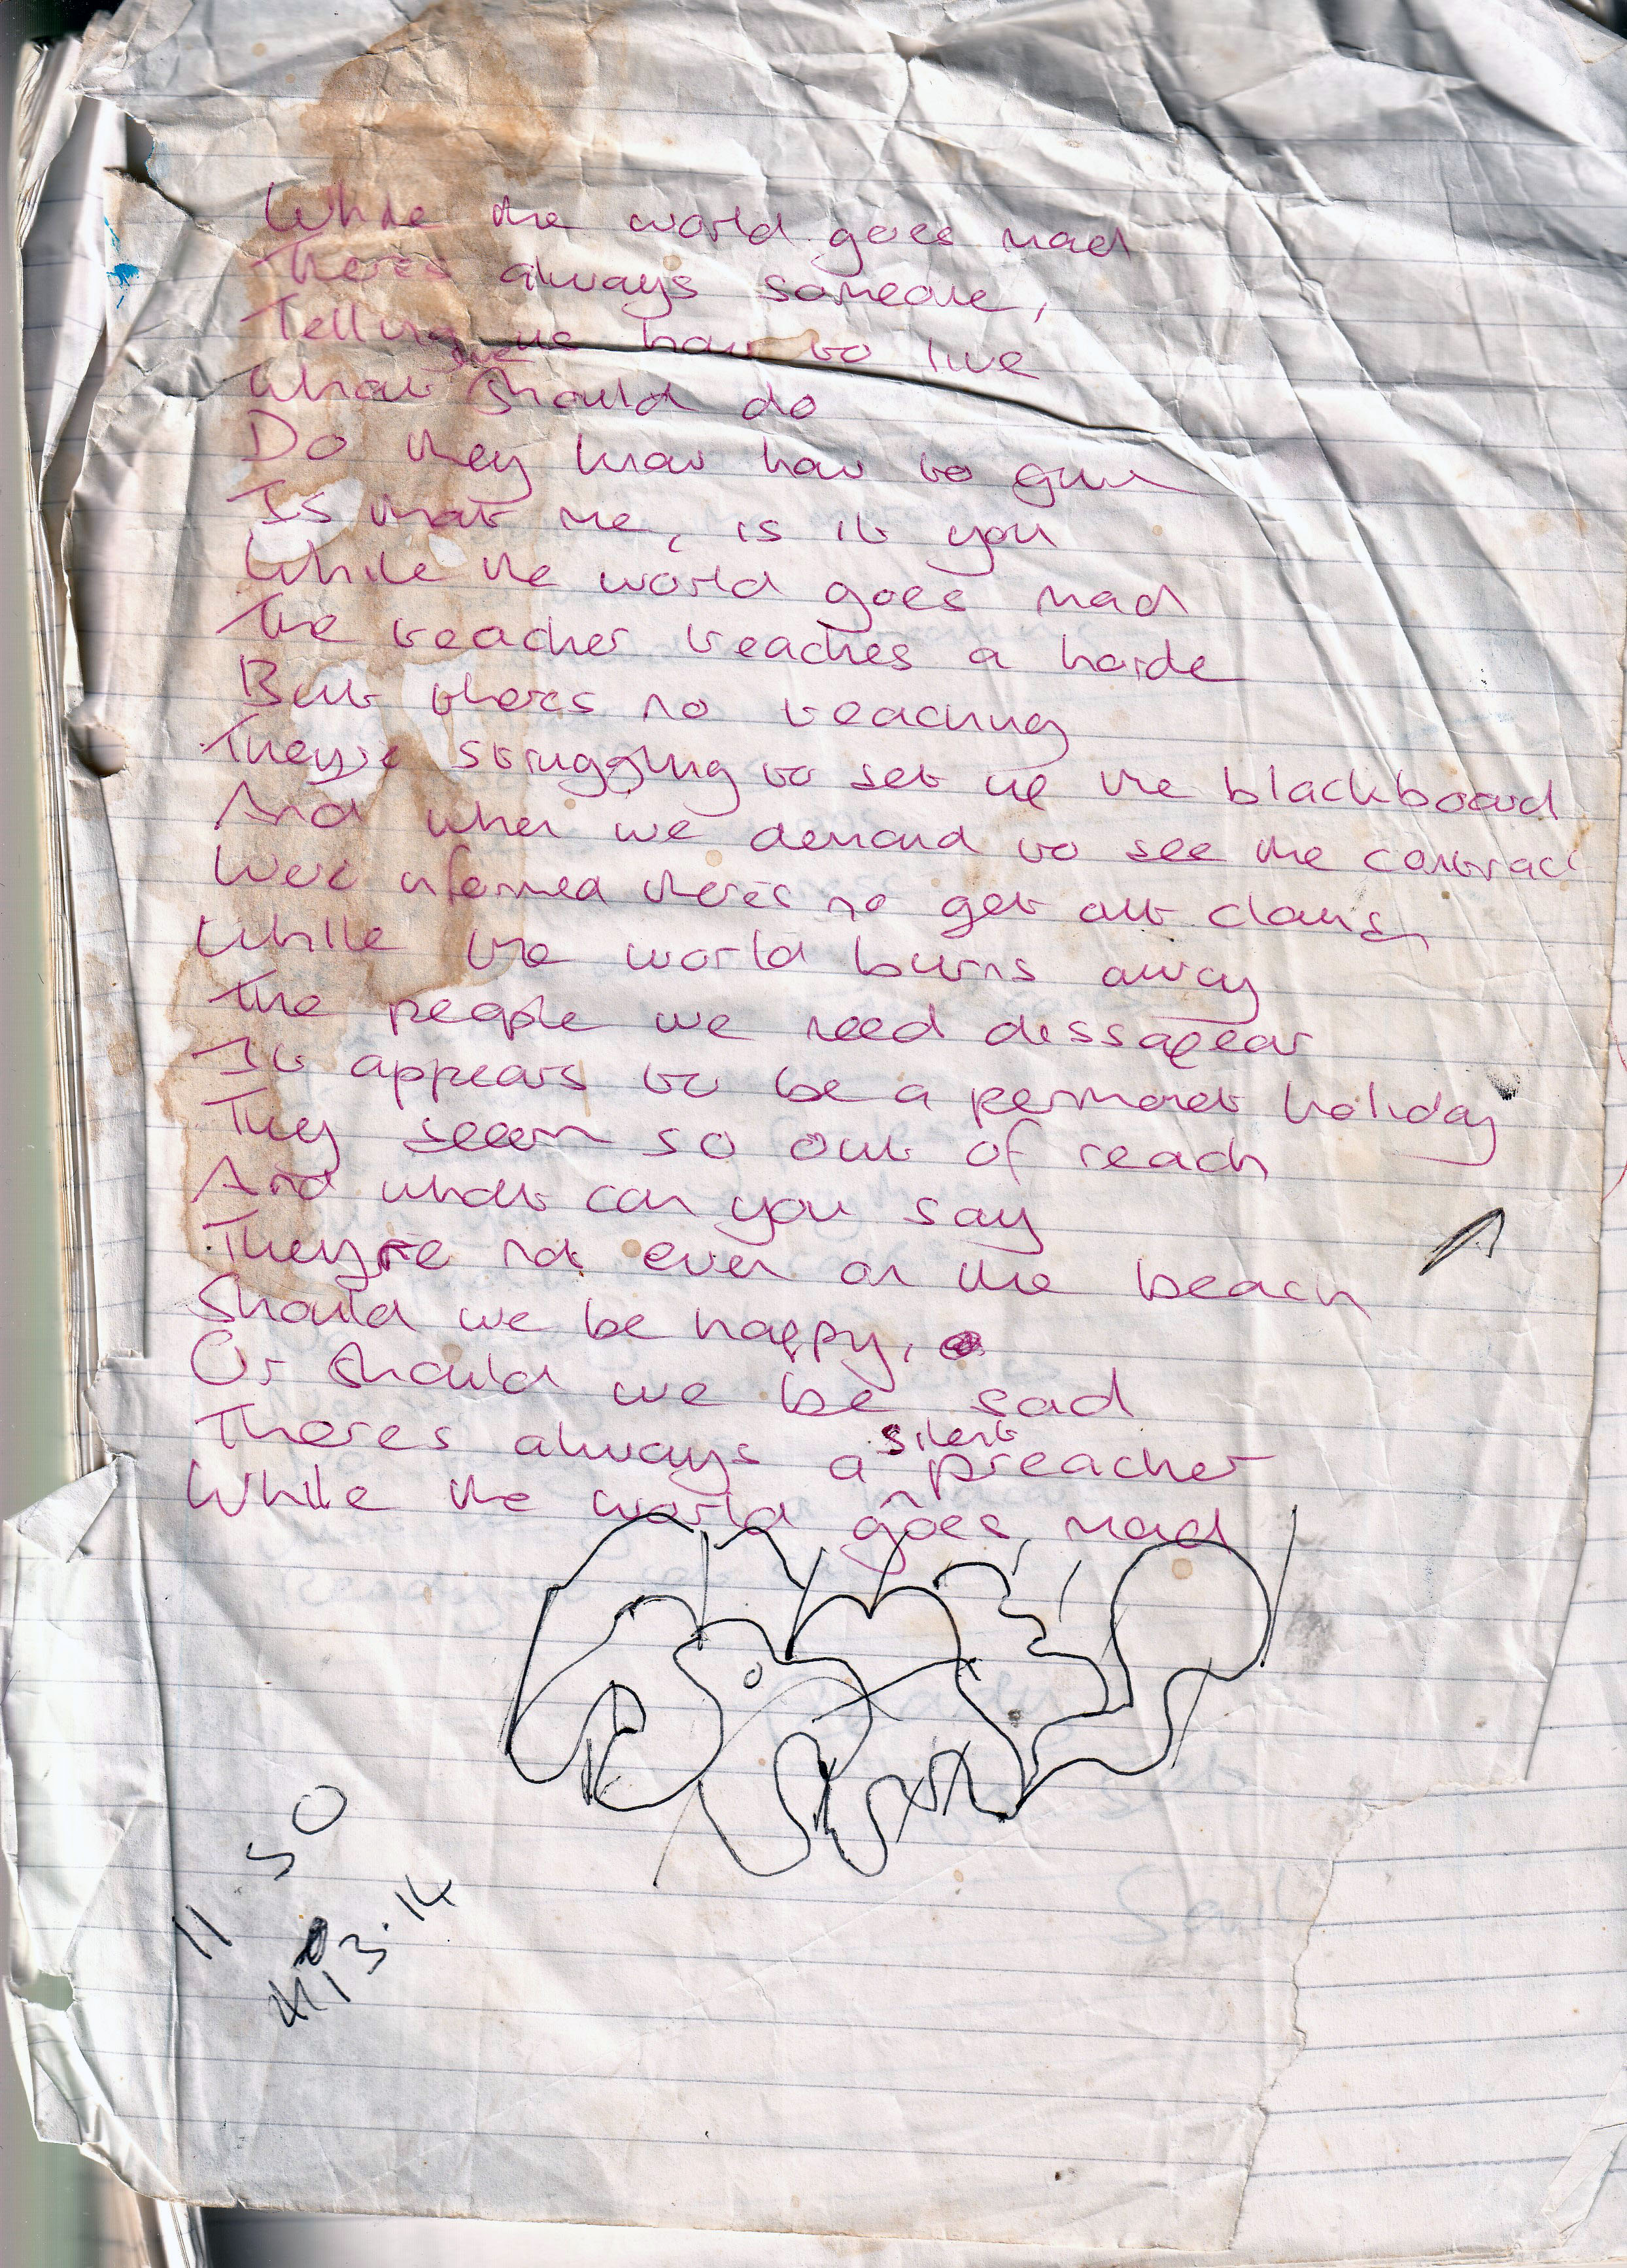 While the world goes mad
Theres always someone,
Telling us how to live
What we should do
Do they know how to give
Is that me, is it you
While the world goes mad
The teacher teaches a horde
But theres no teaching
They're struggling to set up the blackboard
And when we demand to see the contract
We're informed there's no get out clause
While the world burns away
The people we need dissapear
It appears to be a permanent holiday
They seem so out of reach
And what can you say
They're not even on the beach
Should we be happy,
Or should we be sad
Theres always a silent preacher
While the world goes mad
11 50
3.14